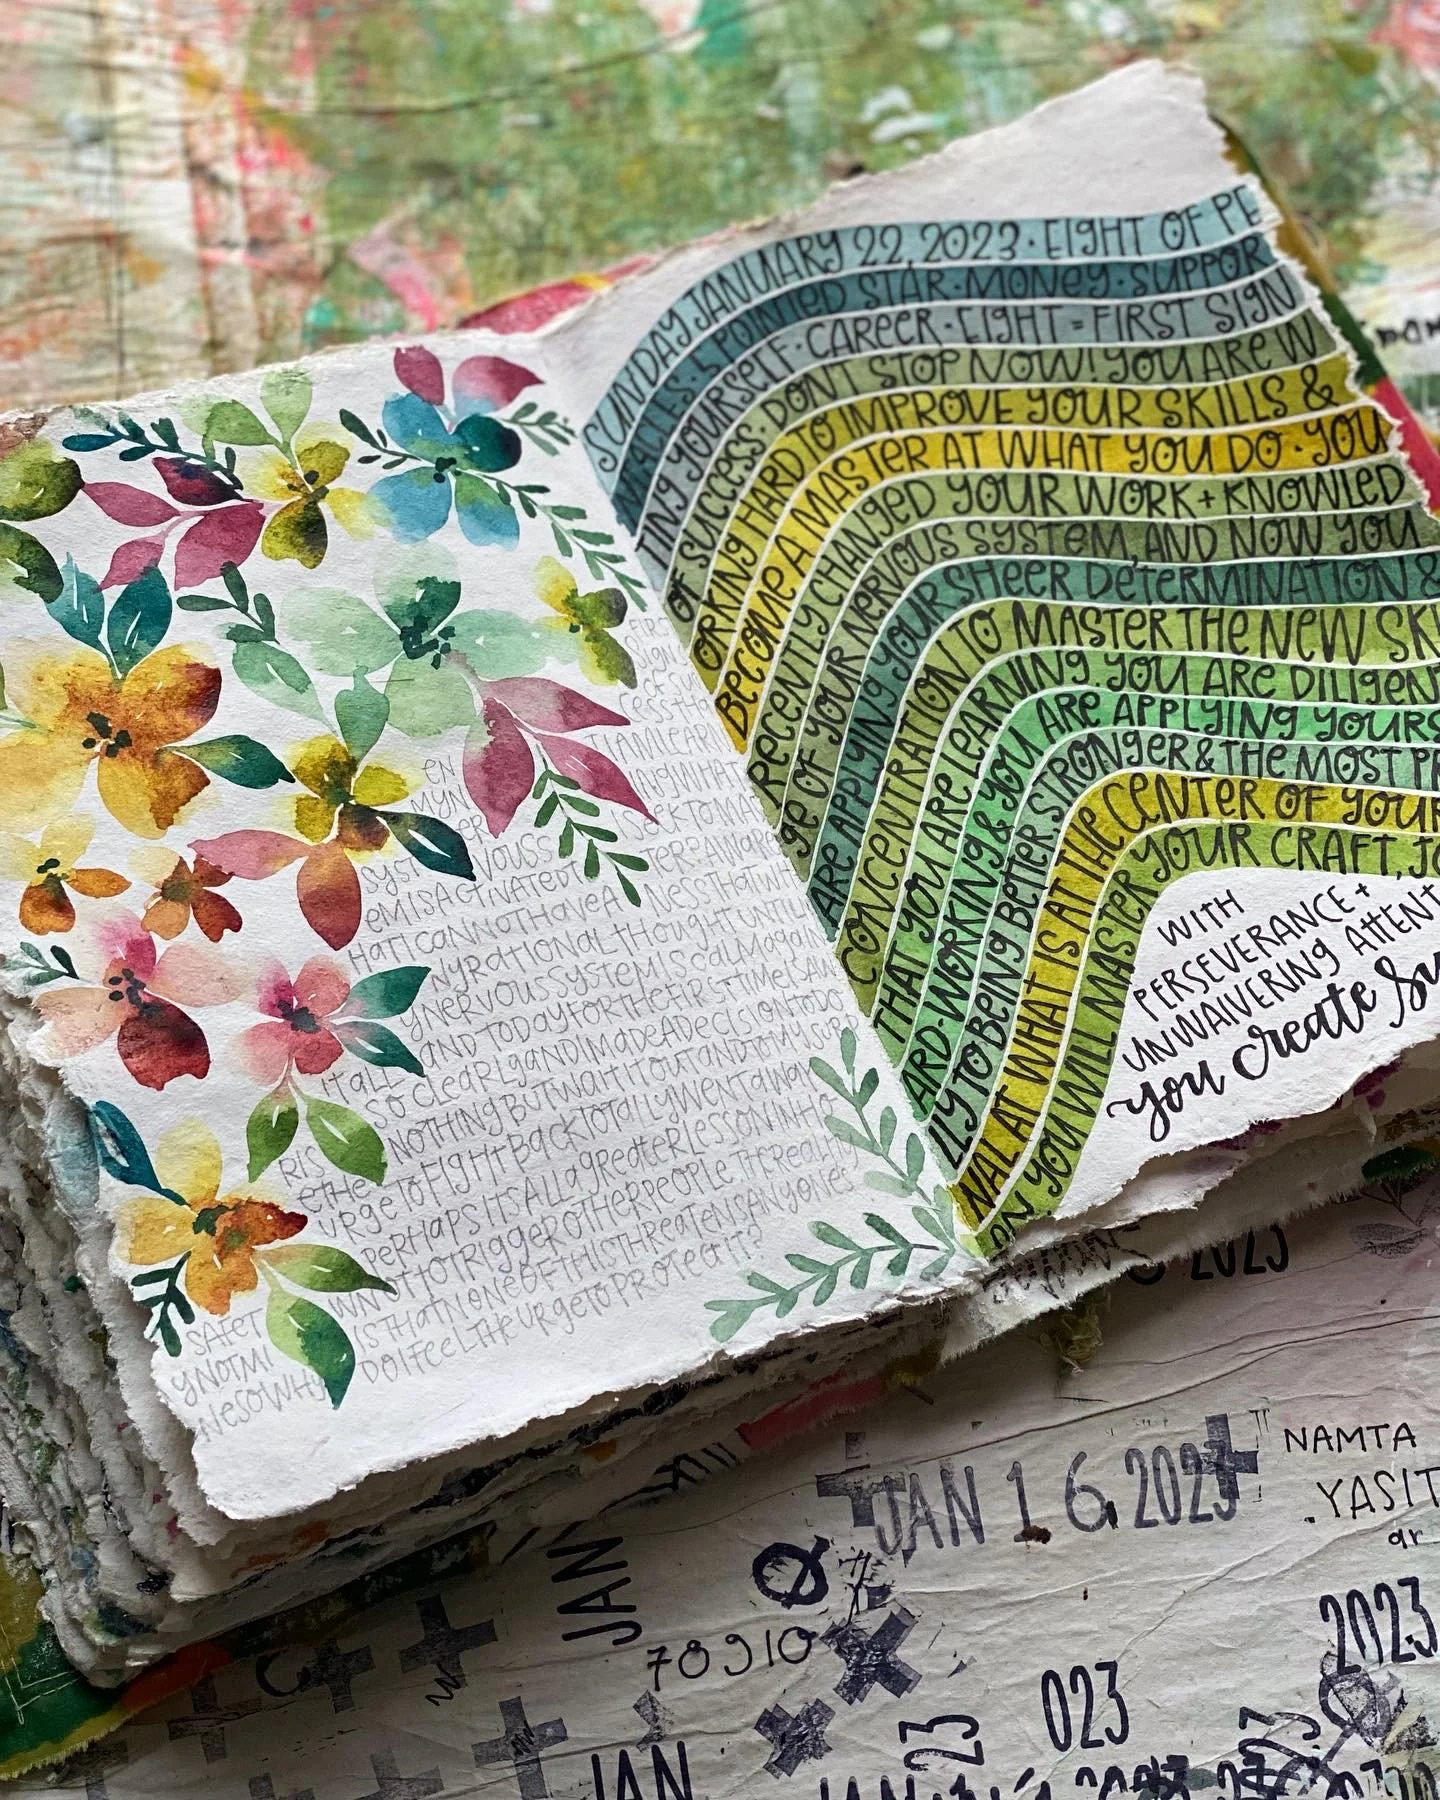 FIRS
SIGN
ESS THA
T I AM LEARN
ING WHAT
I SEEK TO MAS
TER? AWARE
NESS THAT WH
EN
MY N
ER VOUS S
SYST
EM IS ACTIVATED T
HAT I CANNOT HAVE A
NY RATIONAL THOUGHT UNTIL
MY NERVOUS SYSTEM IS CALM AGAIN
AND TODAY FOR THE FIRST TIME I SAW
IT ALL SO CLEARLY AND I MADE A DECISION TO DO
NOTHING BUT WAIT IT OUT AND TO MY SURP
RIS
E THE
URGE TO FIGHT BACK TOTALLY WENT AWAY
PERHAPS ITS ALL A GREATER LESSON IN HO
W NOT TO TRIGGER OTHER PEOPLE THE REALITY
IS THAT NONE OF THIS THREATENS ANYONES
SAFET
Y NOT MI
NE SO WHY
DO I FEEL THE URGE TO PROTECT IT?
SUNDAY JANUARY 22, 2023 · EIGHT OF PE
5 POINTED STAR · MONEY · SUPPOR
TING YOURSELF · CAREER · EIGHT = FIRST SIGN
OF SUCCESS · DON'T STOP NOW! YOU ARE W
ORKING HARD TO IMPROVE YOUR SKILLS &
BECOME A MASTER AT WHAT YOU DO · YOU
RECENTLY CHANGED YOUR WORK + KNOWLED
GE OF YOUR NERVOUS SYSTEM, AND NOW YOU
ARE APPLYING YOUR SHEER DETERMINATION &
CONCENTRATION TO MASTER THE NEW SKI
THAT YOU ARE LEARNING. YOU ARE DILIGENT
ARD-WORKING & YOU ARE APPLYING YOURS
LLY TO BEING BETTER, STRONGER & THE MOST PR
NAL AT WHAT IS AT THE CENTER OF YOUR
ON YOU WILL MASTER YOUR CRAFT,
WITH
PERSEVERANCE +
UNWAIVERING ATTENT
you create Su
2023
JAN 16 2023
NAMTA
YASIT
ar
JAN
78910
2023
023
23
JAN